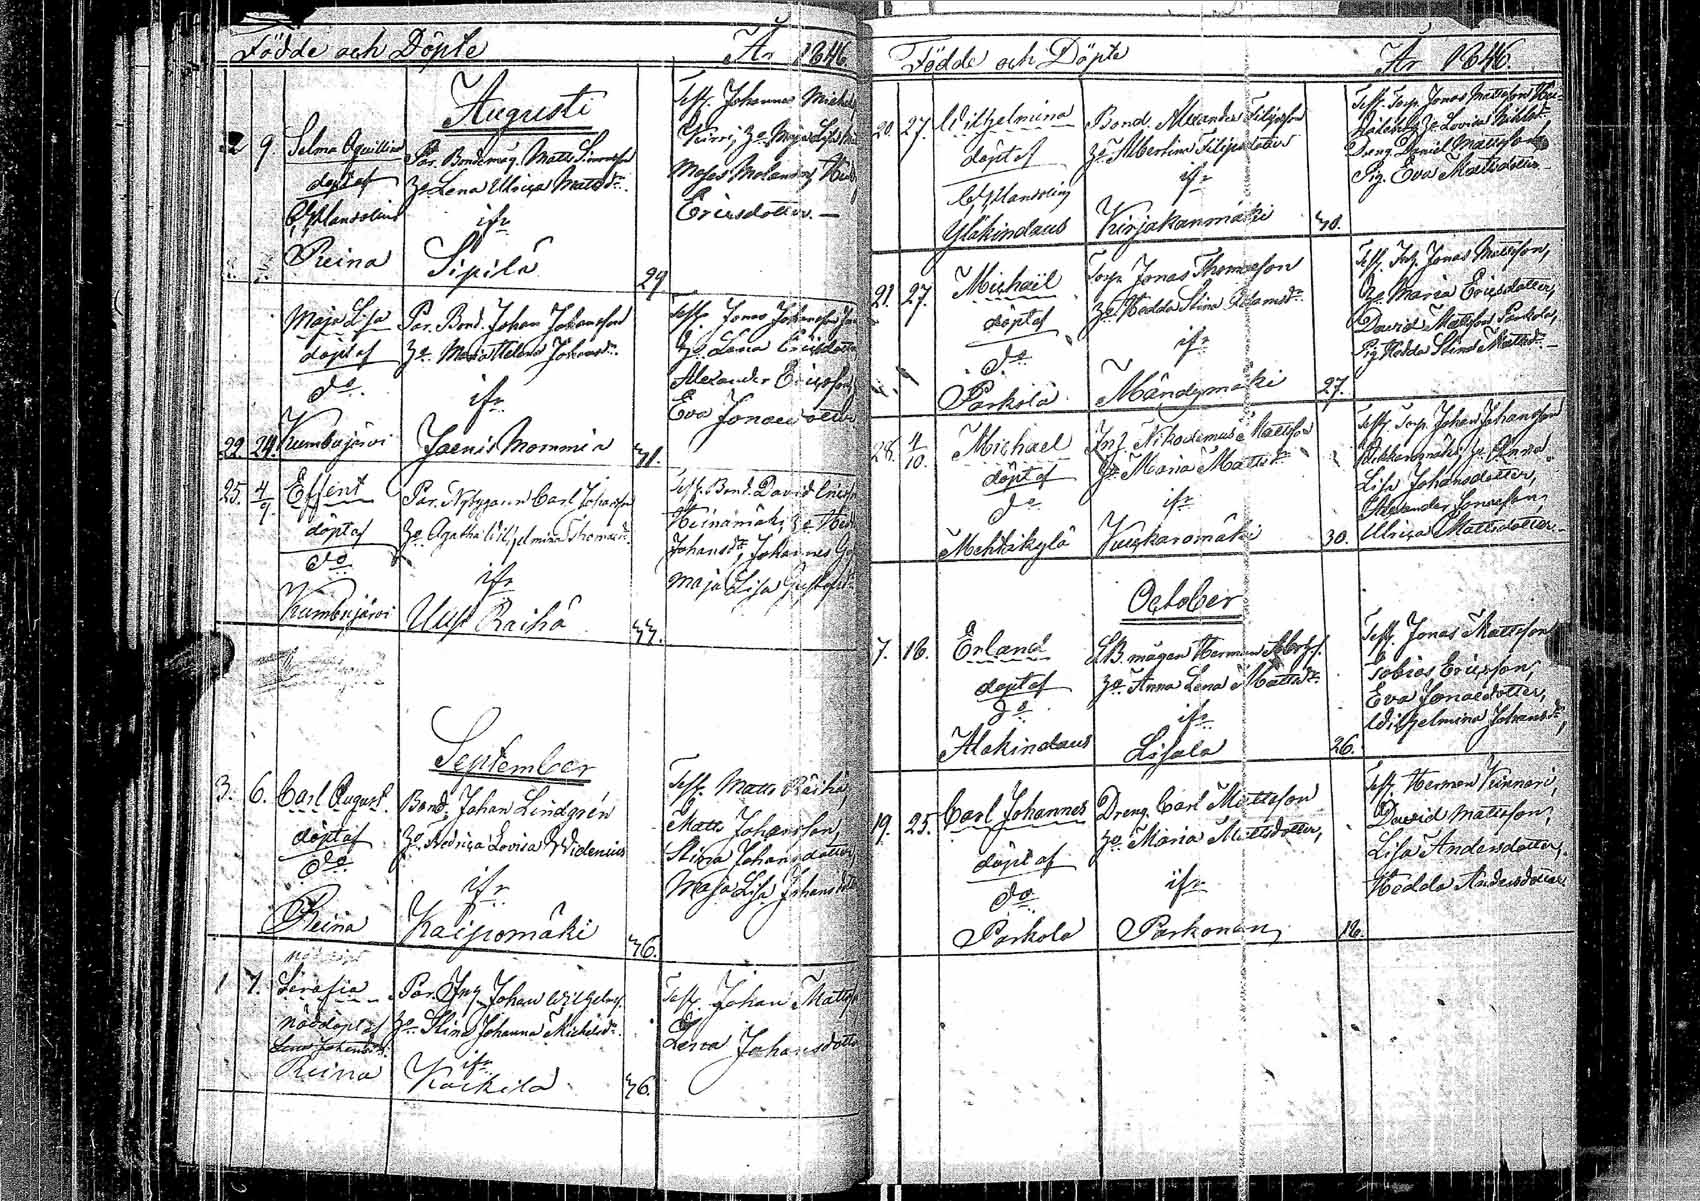 Födde och Döpte År 1846.
Augusti
2 9. Selma Aquilina
döpt af
Reina
Par. Bondemåg. Matts Simonsson
Ho. Lena Ulrica Mattsdr.
ifr
Sipilä
29
Test. Johannes Michels
Ho. Maja Lisa
Moses Molander, Hed.
Ericsdotter.
22. 24. Maja Lisa
döpt af
do
Kumbujärvi
Par. Bond. Johan Johansson
Ho. Maria Helena Johansdr.
ifr
Jaenis Mommin
41.
Test. Jonas Johansson
Ho. Lena Ericsdotter
Alexander Ericsson,
Eva Jonaedotter
25. 4/9 Effent
döpt af
do
Kumbujärvi
Par. Nybyggaren Carl Johansson
Ho. Agatha Wilhelmina Thomasdr.
ifr
Uusi Raihä
44.
Test. Bond. David Ericsson
Heinämäki, Ho Hed.
Johansdr, Johannes
Maja Lisa Gustafsdr
September
3. 6. Carl August.
döpt af
do
Reina
Bond. Johan Lindgrén
Ho. Fredrica Lovisa Widenius
ifr
Kaipomäki
46.
Test. Matts Räihä,
Matts Johansson,
Stina Johansdotter
Maja Lisa Johansdotter
1 7. Serafia
nöddöpt af
Lena Johansdr.
Reina
Par. Inh. Johan Wilhelmsf.
Ho. Stina Johanna Michelsdr.
ifr
Kaikila
46.
Test. Johan Mattsson
Lena Johansdotter
Födde och Döpte År 1846.
20. 27. Wilhelmina
döpt af
Yläkindaus
Bond. Alexander Filipsson
Ho Albertina Filipsdotter
ifr
Kirjakanmäki
40.
Test. Torp. Jonas Mattsson
Ho Lovisa Michlsdr.
Dreng Daniel Mattsson
Pig. Eva Mattsdotter
21. 27. Michaël
döpt af
do
Parkola
Torp. Jonas Thomasson
Ho Hedda Stina Adamsdr
ifr
Mändymäki
27.
Test. Inh. Jonas Mattsson,
Ho Maria Ericsdotter,
David Mattsson Parkola,
Pig Hedda Stina Mattsdr.
28. 4/10. Michael
döpt af
do
Mehtäkylä
Inh. Nikodemus Mattsson
Ho Maria Mattsdr
ifr
Vuczkaromäki
30.
Test. Torp. Johan Johansson
Ho Anna
Lisa Johansdotter,
Alexander Jonasson,
Ulrica Mattsdotter
October
7. 18. Erland
döpt af
do
Alakindaus
LB. mågen Herman
Ho Anna Lena Mattsdr.
ifr
Lisala
26.
Test. Jonas Mattsson
Tobias Ericsson,
Eva Jonaedotter,
Wilhelmina Johansdr,
19. 25. Carl Johannes
döpt af
do
Parkola
Dreng Carl Mattsson
Ho Maria Mattsdotter,
ifr
Parkonen
18.
Test. Herman Kinnari,
David Mattsson,
Lisa Andersdotter,
Hedda Andersdotter